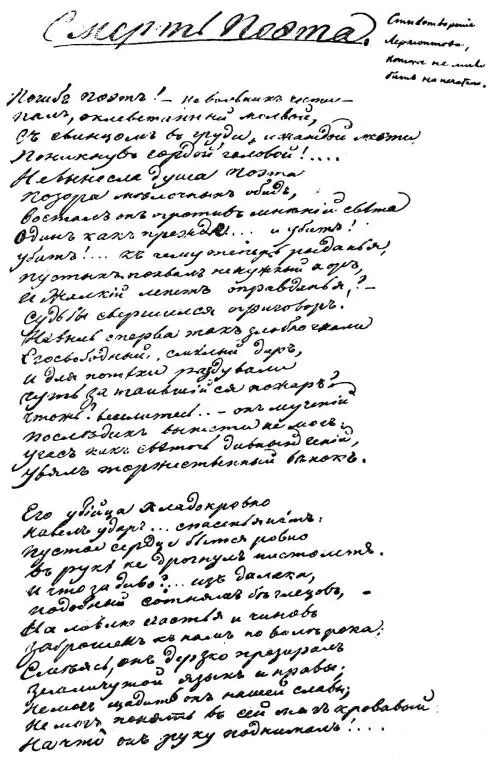 Смерть Поэта.
Стихотвореніе
Лермонтова,
которое не
быть въ печати.
Погибъ поэтъ! – невольникъ чести –
Палъ, оклеветанный молвой,
Съ свинцомъ въ груди, и жаждой мести
Поникнувъ гордой головой!....
Невынесла душа поэта
Позора мелочныхъ обидъ,
Возсталъ онъ противъ мнѣній свѣта
Одинъ какъ прежде... и убитъ!
Убитъ!... къ чему теперь рыданья,
Пустыхъ похвалъ ненужный хоръ,
И жалкій лепетъ оправданья? –
Судьбы свершился приговоръ.
Не вы ль сперва такъ злобно гнали
Его свободный, смѣлый даръ,
И для потѣхи раздували
Чуть затаившійся пожаръ?
Чтожъ? веселитесь... – онъ мученій
Послѣднихъ вынести не могъ:
Угасъ какъ свѣточь дивный геній,
Увялъ торжественный вѣнокъ.
Его убійца хладнокровно
Навелъ ударъ... спасенья нѣтъ:
Пустое сердце бьется ровно
Въ рукѣ не дрогнулъ пистолетъ.
И что за диво?... изъ далека,
Подобный сотнямъ бѣглецовъ, –
На ловлю счастья и чиновъ
Заброшенъ къ намъ по волѣ рока;
Смѣясь, онъ дерзко презиралъ
Земли чужой языкъ и нравы;
Не могъ щадить онъ нашей славы;
Не могъ понять въ сей мигъ кровавый
На что онъ руку поднималъ!....